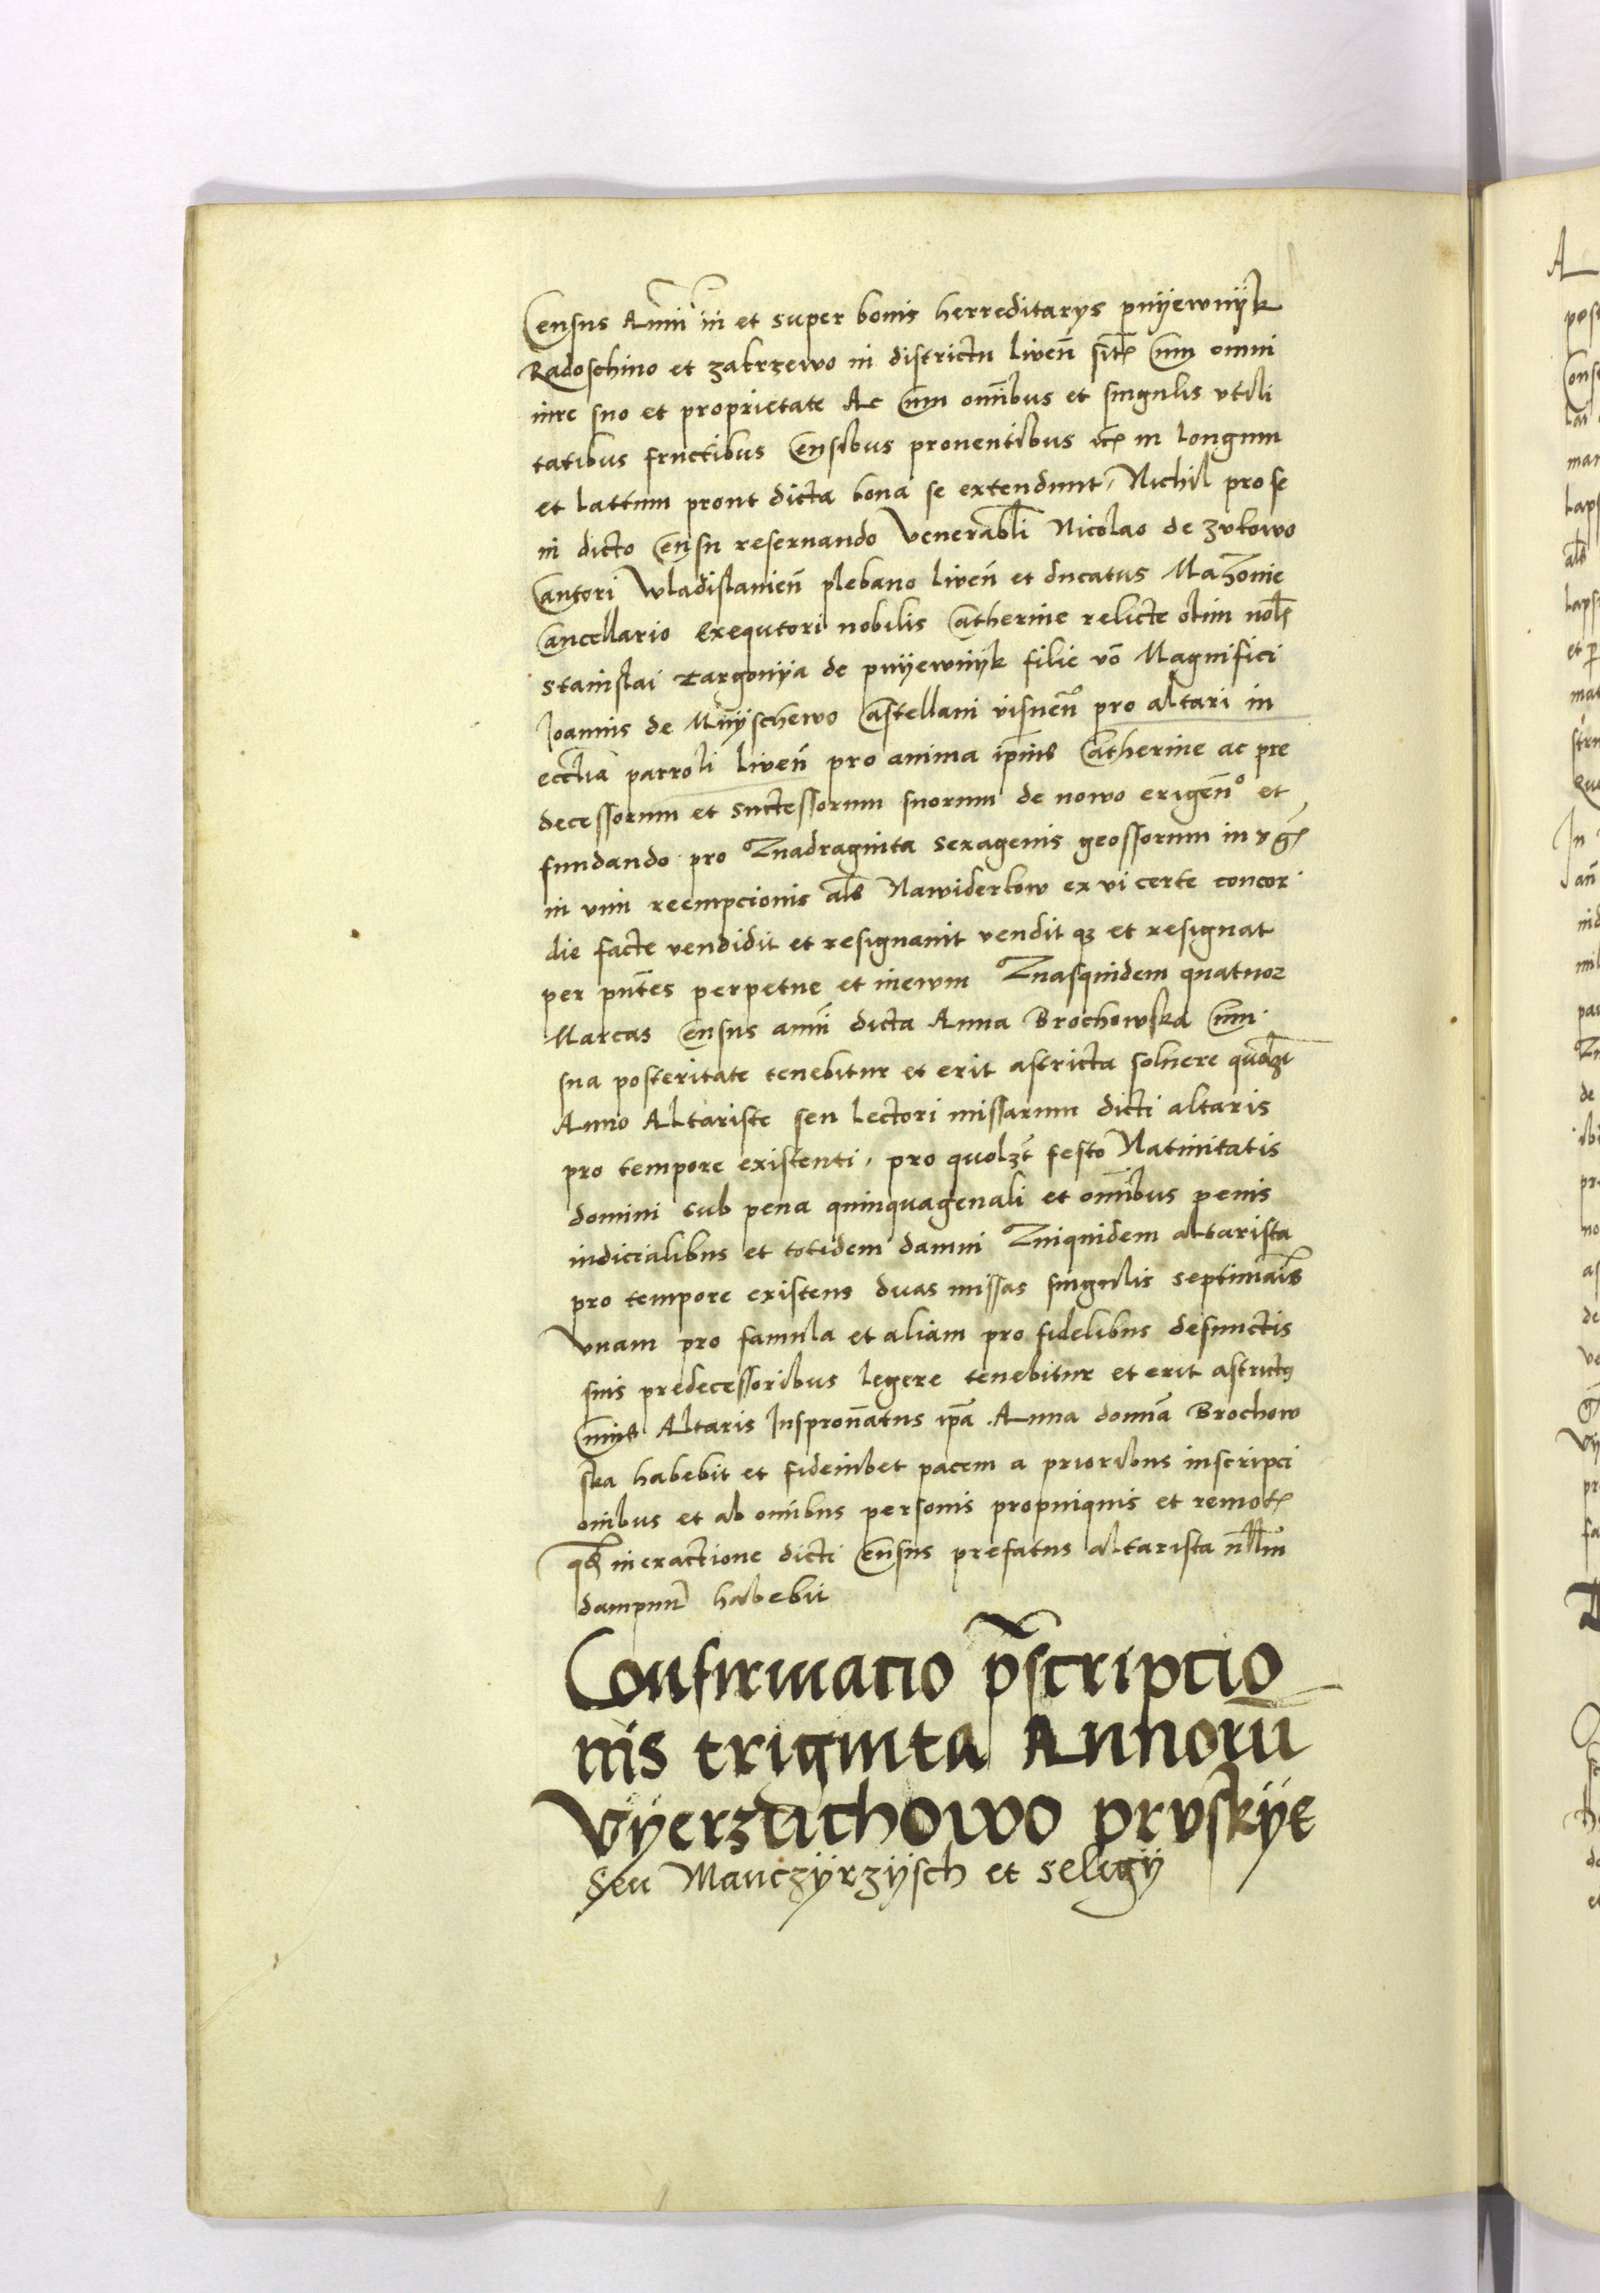 Census Annui in et super bonis herreditarys pnyewnyk
Radoschino et zakrzewo in districtu liven̄ sit̄ Cum omni
iure suo et proprietate Ac Cum omībus et singulis utili
tatibus fructibus Censibus proventibus in longum
et lattum prout dicta bona se extendunt, Nichil pro se
in dicto Censu reservando Venerabli Nicolao de zukowo
Cantori Wladislavien̄ plebano liven̄ et ducatus Mazovie
Cancellario Exequtori nobilis Catherine relicte olim nobl̄
stanislai Targonya de pnyewnyk filie vō Magnifici
Joannis de Mnyschewo Castellani visnen̄ pro altari in
ecctia parroli liven̄ pro anima ip̄ius Catherine ac pre
decessorum et suctessorum suorum de nowo erigen̄o et
fundando pro Quadraginta sexagenis grossorum in
in vim reempcionis als̄ Nawiderkow ex vi certe concor
die facte vendidit et resignavit vendit qz et resignat
per pn̄tes perpetue et inewm Quasquidem quatuor
Marcas Census annui dicta Anna Brochowska Cum
sua posteritate tenebitur et erit astricta solvere quolzt̄
Anno Altariste seu lectori missarum dicti altaris
pro tempore existenti, pro quolzt̄ festo Nativitatis
domini sub pena quinquagenali et omībus penis
iudicialibus et totidem damni Quiquidem altarista
pro tempore existens duas missas singulis septimais̄
Vnam pro famula et aliam pro fidelibus defunctis
suis predecessoribus legere tenebitur et erit astrictus
Cuius Altaris Juspron̄atus ip̄a Anna domna Brochow
ska habebit et fideiubet pacem a prioribus inscripci
onibus et ab omībus personis propniquis et remot̄
in exactione dicti Census prefatus altarista nullum
dampnum̄ habebit
Confirmacio p̄scriptio
nis triginta Annorū
Vyerzdichowo pruskye
Seu Manczyrzysch et seligy